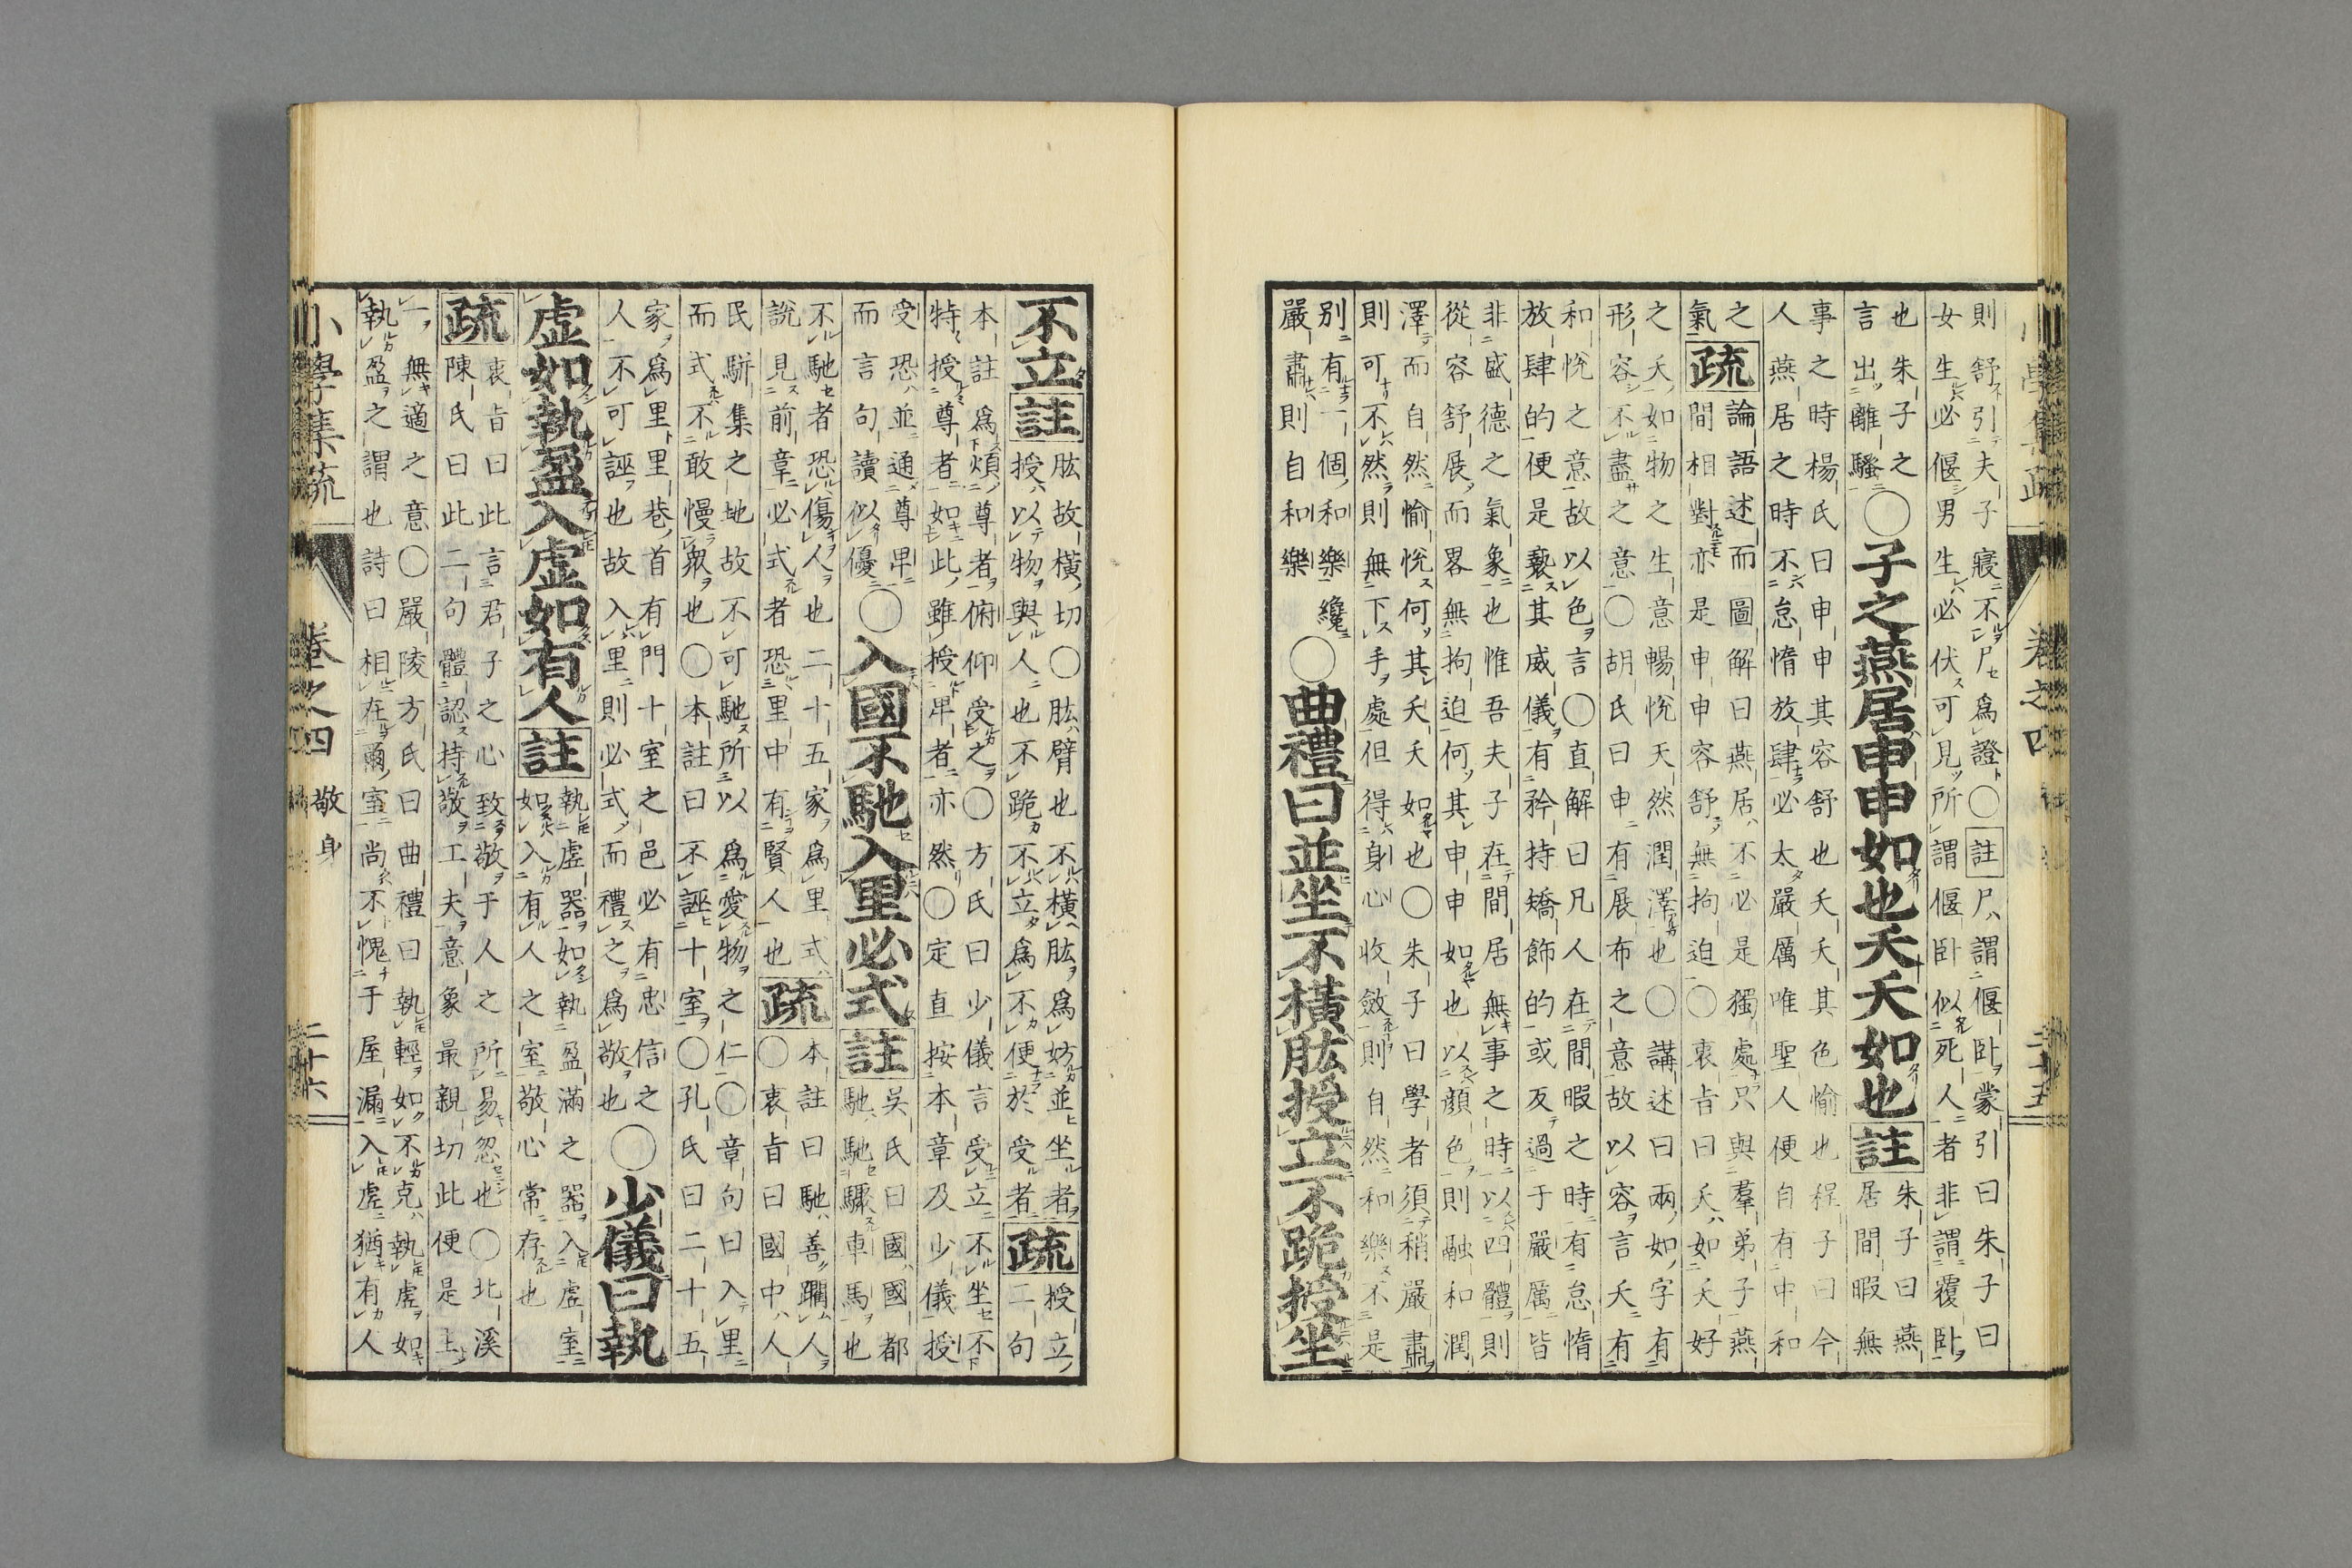 則舒引夫子寢不尸爲證○註尸謂偃卧蒙引曰朱子曰
女生必偃男生必伏可見所謂偃卧似死人者非謂覆卧
也朱子之
言出離騷
○子之燕居申申如也夭夭如也註
朱子曰燕
居間暇無
事之時楊氏曰申申其容舒也夭夭其色愉也程子曰今
人燕居之時不怠惰放肆必太嚴厲唯聖人便自有中和
之
氣
疏
論語述而圖解曰燕居不必是獨處只與羣弟子燕
間相對亦是申申容舒無拘迫○衷㫖曰夭如夭好
之夭如物之生意暢悅天然潤澤也○講述曰兩如字有
形容不盡之意○胡氏曰申有展布之意故以容言夭有
和悅之意故以色言○直解曰凡人在間暇之時有怠惰
放肆的便是褻其威儀有矜持矯飾的或反過于嚴厲皆
非盛德之氣象也惟吾夫子在間居無事之時以四體則
從容舒展而畧無拘迫何其申申如也以顔色則融和潤
澤而自然愉悅何其夭夭如也○朱子曰學者須稍嚴肅
則可不然則無下手處但得身心收斂則自然和樂不是
别有一個和樂纔
嚴肅則自和樂
○曲禮曰並坐不橫肱授立不跪授坐
不立註
肱故橫切○肱臂也不橫肱爲妨並坐者
授以物與人也不跪不立爲不便於受者
疏
授立
二句
本註爲煩尊者俯仰受之○方氏曰少儀言受立不坐不
特授尊者如此雖授卑者亦然○定直按本章及少儀授
受恐並通尊卑
而言句讀似優
○入國不馳入里必式註
吳氏曰國國都
馳馳驟車馬也
不馳者恐傷人也二十五家爲里式
說見前章必式者恐里中有賢人也
疏
本註曰馳善躙人
○衷㫖曰國中人
民駢集之地故不可馳所以爲愛物之仁○章句曰入里
而式不敢慢衆也○本註曰不誣十室○孔氏曰二十五
家爲里里巷首有門十室之邑必有忠信之
人不可誣也故入里則必式而禮之爲敬也
○少儀曰執
虛如執盈入虛如有人註
執虛器如執盈滿之器入虛室
如入有人之室敬心常存也
疏
衷㫖曰此言君子之心致敬于人之所易忽也○北溪
陳氏曰此二句體認持敬工夫意象最親切此便是主
一無適之意○嚴陵方氏曰曲禮曰執輕如不克執虛如
執盈之謂也詩曰相在爾室尚不愧于屋漏入虛猶有人
小學集疏
卷之四
敬身
二十六